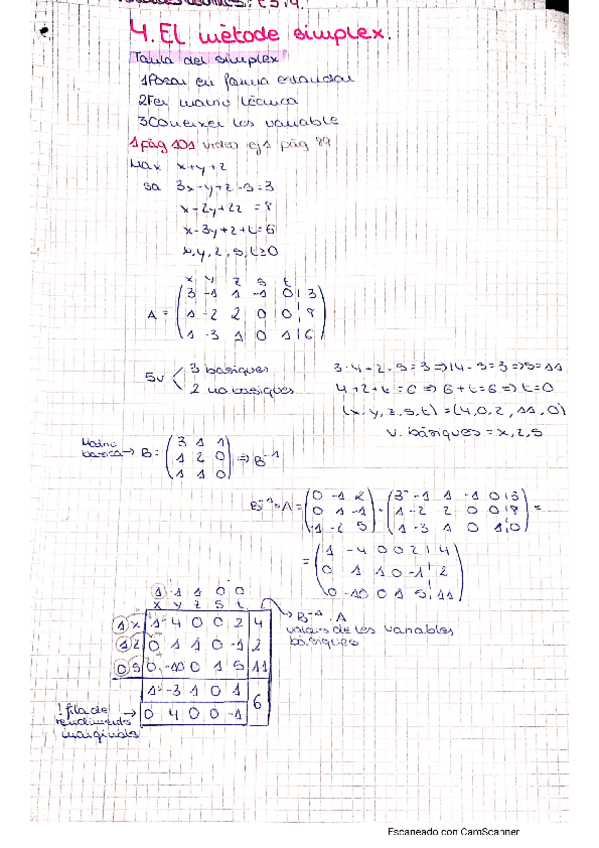 4. El mètode simplex.
Taula del simplex
1 Posar en forma estandar
2 Fer matriu tècnica
3 Coneixer les variable
1 pág 101 video ej 1 pág 99
Max x+y+z
sa 3x-y+z-s=3
x-2y+2z =8
x-3y+z+t=6
x,y,z,s,t≥0
x y z s t
3 -1 1 -1 0 | 3
A = 1 -2 2 0 0 | 8
1 -3 1 0 1 | 6
5v < 3 basiques
2 no basiques
3·4+2-s=3 ⇒ 14-s=3 ⇒ s=11
4+2+t=6 ⇒ 6+t=6 ⇒ t=0
(x,y,z,s,t)=(4,0,2,11,0)
v. bàsiques = x,z,s
3 1 1
bàsica → B = 1 2 0 ⇒ B⁻¹
1 1 0
0 -1 2 3 -1 1 -1 0 | 3
B⁻¹·A = 0 1 -1 · 1 -2 2 0 0 | 8 =
-1 -2 5 1 -3 1 0 1 | 0
1 -4 0 0 2 | 4
= 0 1 1 0 -1 | 2
0 -10 0 1 5 | 11
1 1 1 0 0
x y z s t
1 x 1 -4 0 0 2 4
1 z 0 1 1 0 -1 2
0 s 0 -10 0 1 5 11
→ B⁻¹·A
valors de les variables
bàsiques
1 -3 1 0 1
6
fila de
rendiments → 0 4 0 0 -1
marginals
Escaneado con CamScanner